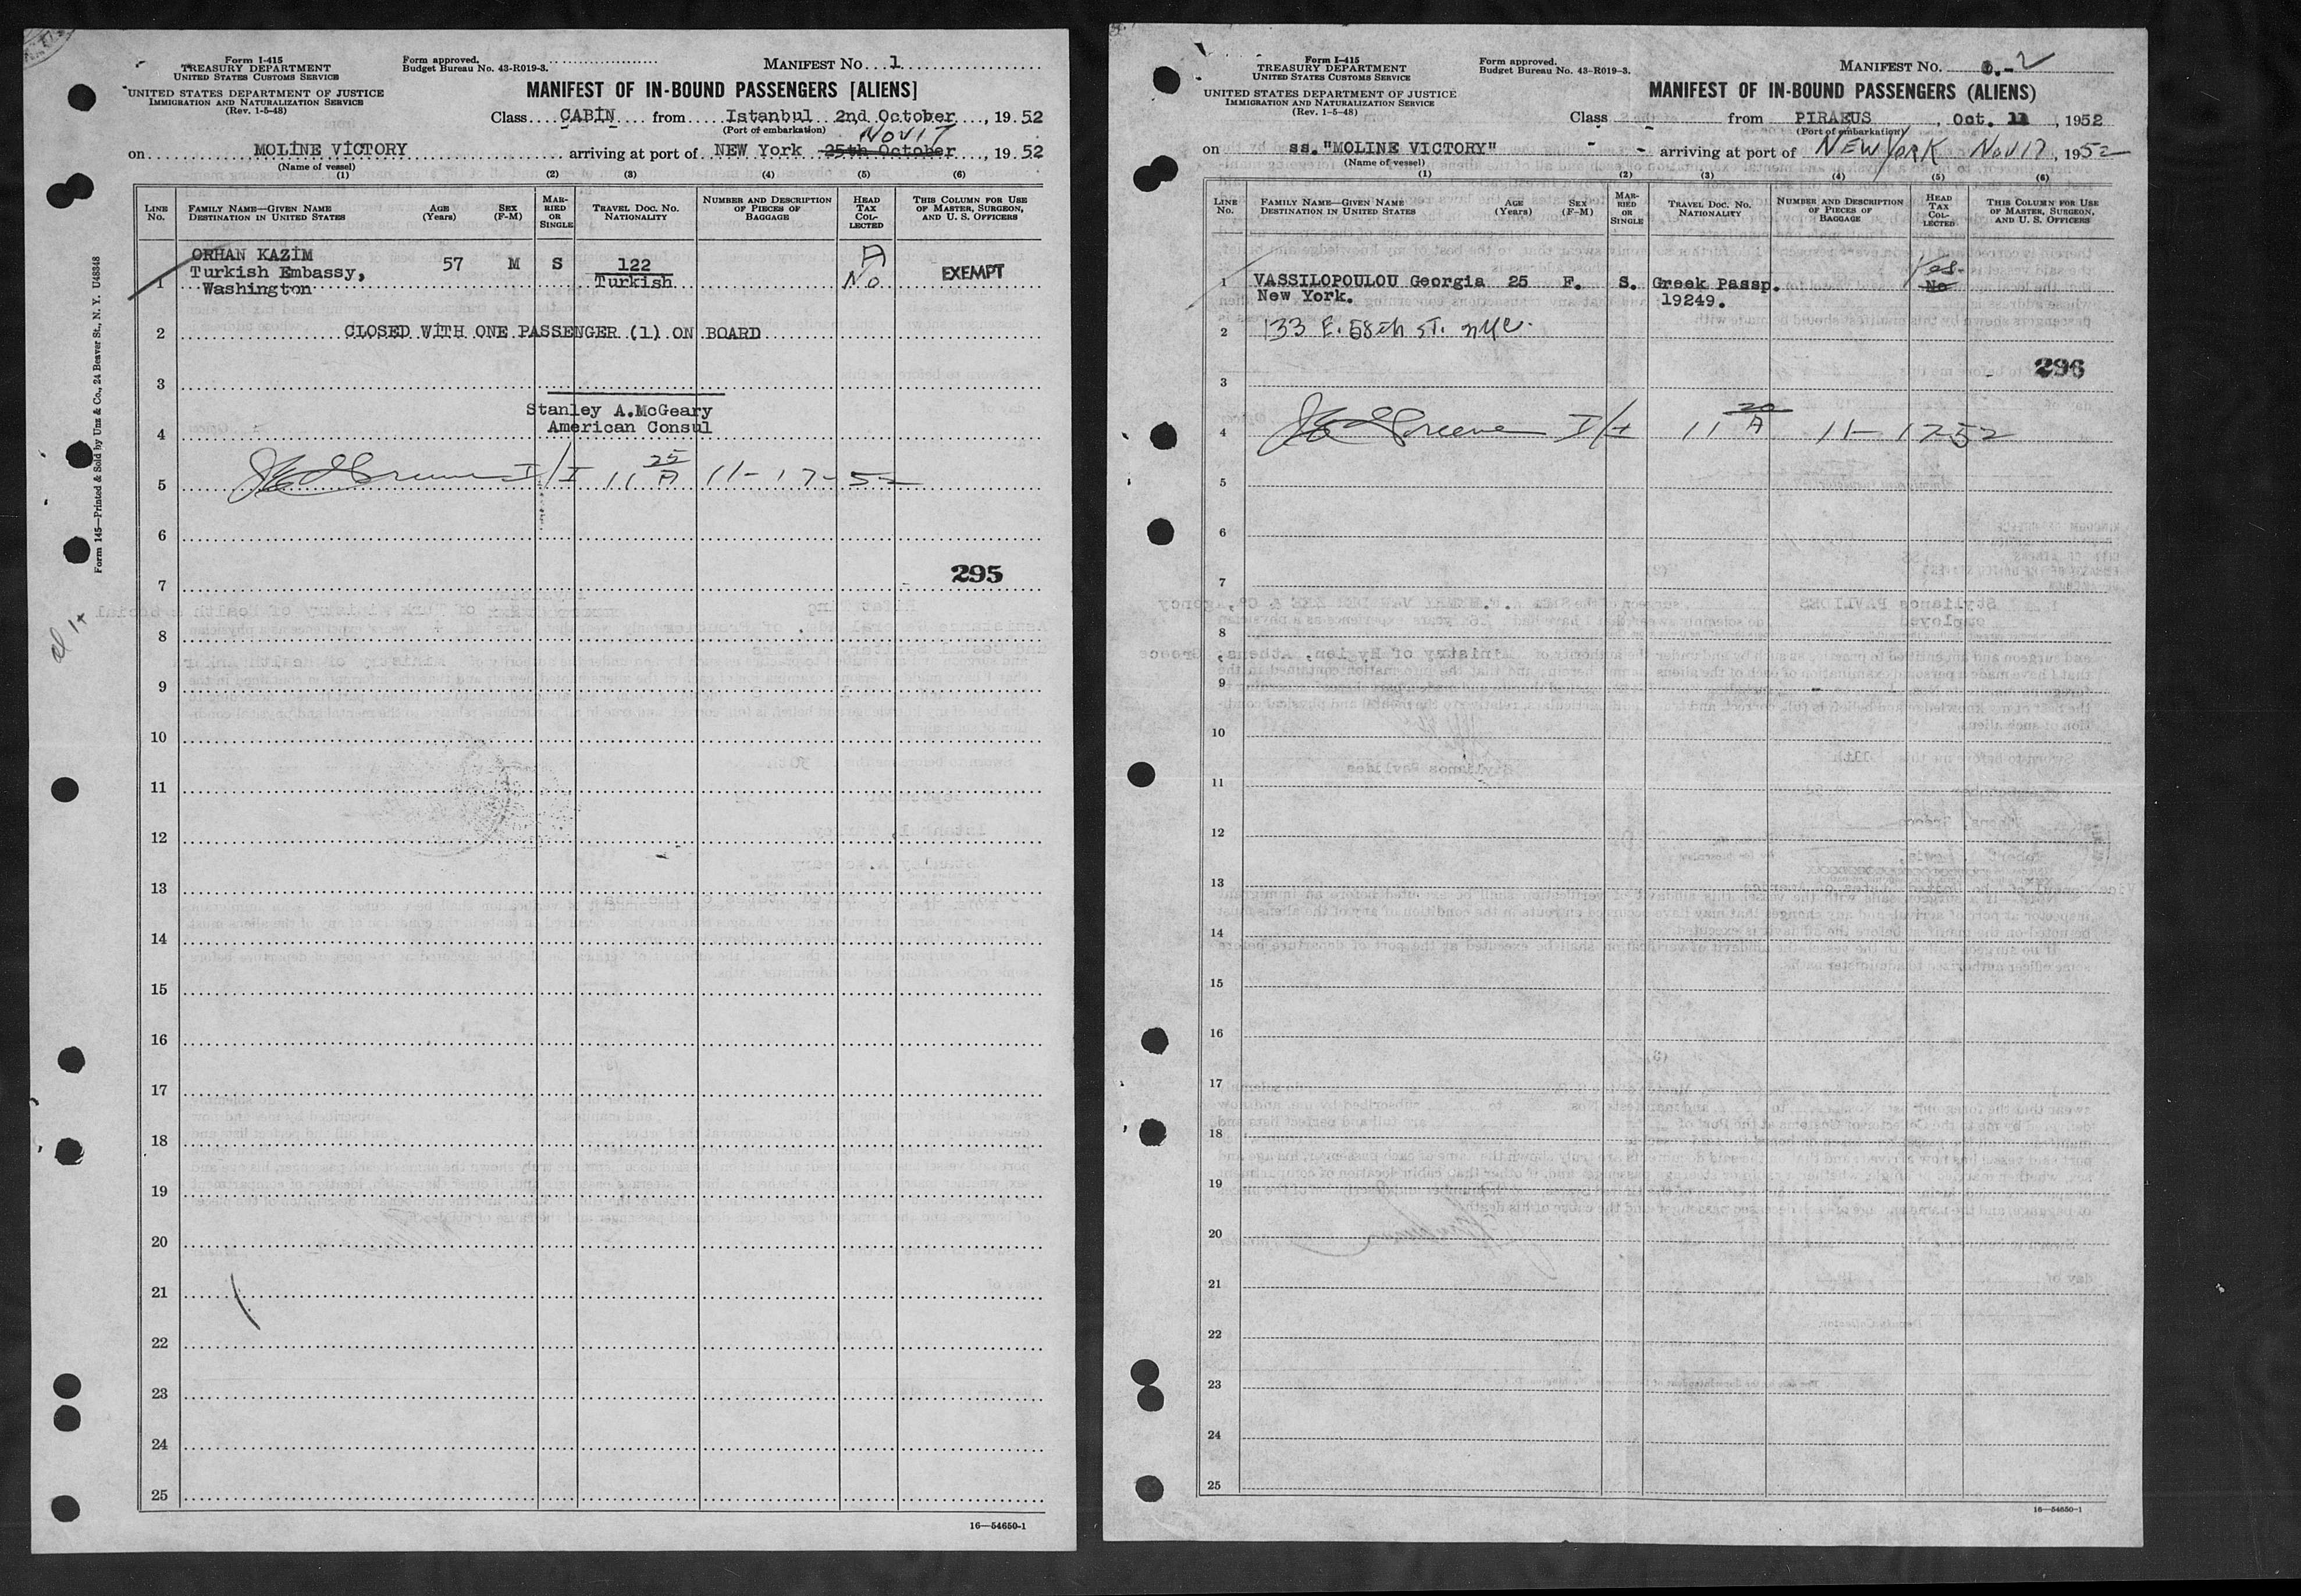 Form I-415
TREASURY DEPARTMENT
UNITED STATES CUSTOMS SERVICE
UNITED STATES DEPARTMENT OF JUSTICE
IMMIGRATION AND NATURALIZATION SERVICE
(Rev. 1-5-48)
Form approved.
Budget Bureau No. 43-R019-3.
MANIFEST NO. 1
MANIFEST OF IN-BOUND PASSENGERS [ALIENS]
Class CABİN from Istanbul 2nd October, 1952
(Port of embarkation)
Nov 17
on MOLİNE VİCTORY arriving at port of NEW York 25th October, 1952
(Name of vessel)
(1) (2) (3) (4) (5) (6)
LINE NO.
FAMILY NAME—GIVEN NAME
DESTINATION IN UNITED STATES
AGE (Years)
SEX (F-M)
MARRIED OR SINGLE
TRAVEL DOC. NO. NATIONALITY
NUMBER AND DESCRIPTION OF PIECES OF BAGGAGE
HEAD TAX COLLECTED
THIS COLUMN FOR USE OF MASTER, SURGEON, AND U. S. OFFICERS
1 ORHAN KAZİM 57 M S 122 A
Turkish Embassy, Turkish No EXEMPT
Washington
2 CLOSED WİTH ONE PASSENGER (1) ON BOARD
3
Stanley A.McGeary
4 American Consul
5 I/I 11 25 A 11-17-52
6
295
7
8
9
10
11
12
13
14
15
16
17
18
19
20
21
22
23
24
25
16—54650-1
Form 145—Printed & Sold by Unz & Co., 24 Beaver St., N. Y. U48348
Form I-415
TREASURY DEPARTMENT
UNITED STATES CUSTOMS SERVICE
UNITED STATES DEPARTMENT OF JUSTICE
IMMIGRATION AND NATURALIZATION SERVICE
(Rev. 1-5-48)
Form approved.
Budget Bureau No. 43-R019-3.
MANIFEST NO. 2
MANIFEST OF IN-BOUND PASSENGERS (ALIENS)
Class from PIRAEUS, Oct. 11, 1952
(Port of embarkation)
on ss."MOLINE VICTORY" arriving at port of NEW YORK Nov 17, 1952
(Name of vessel)
(1) (2) (3) (4) (5) (6)
LINE NO.
FAMILY NAME—GIVEN NAME
DESTINATION IN UNITED STATES
AGE (Years)
SEX (F-M)
MARRIED OR SINGLE
TRAVEL DOC. NO. NATIONALITY
NUMBER AND DESCRIPTION OF PIECES OF BAGGAGE
HEAD TAX COLLECTED
THIS COLUMN FOR USE OF MASTER, SURGEON, AND U. S. OFFICERS
Yes
1 VASSILOPOULOU Georgia 25 F. S. Greek Passp. No
New York. 19249.
2 133 E. 58th ST. NYC.
296
3
4 Greene I/I 11 20 A 11-17-52
5
6
7
8
9
10
11
12
13
14
15
16
17
18
19
20
21
22
23
24
25
16—54650-1